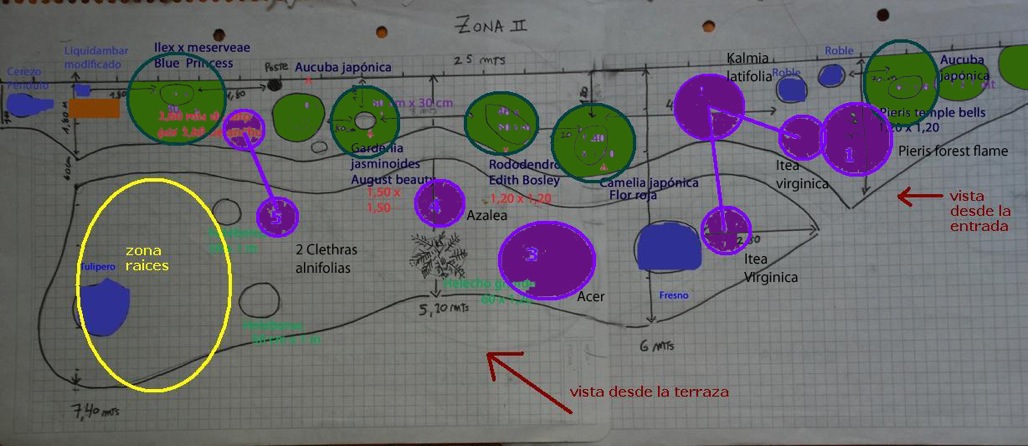 ZONA II
Cerezo
Péndulo
Liquidambar
modificado
Ilex x meserveae
Blue Princess
Poste
Aucuba japónica
25 mts
Kalmia
latifolia
Roble
Roble
Aucuba
japónica
m x 30 cm
Pieris temple bells
1,20 x 1,20
Pieris forest flame
1
Gardenia
jasminoides
August beauty
1,50 x
1,50
Rododendro
Edith Bosley
1,20 x 1,20
Camelia japónica
Flor roja
Itea
virginica
vista
desde la
entrada
4
Azalea
5
zona
raices
2 Clethras
alnifolias
Tulipero
3
Acer
Itea
Virginica
Fresno
5,20 mts
6 mts
7,40 mts
vista desde la terraza